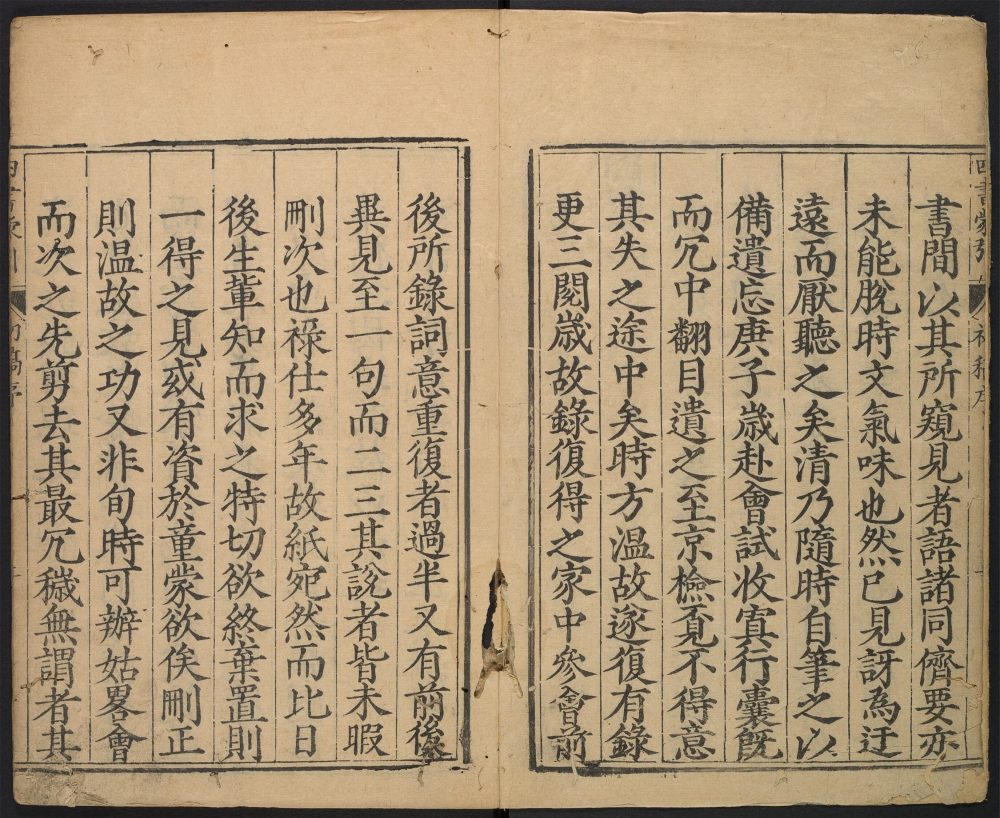 四書蒙引 初稿序
書間以其所窺見者語諸同儕要亦
未能脫時文氣味也然已見訝為迂
遠而厭聽之矣清乃隨時自筆之以
備遺忘庚子歲赴會試收寘行囊既
而冗中翻目遺之至京檢覓不得意
其失之途中矣時方溫故遂復有錄
更三閱歲故錄復得之家中參會前
後所錄詞意重復者過半又有前後
異見至一句而二三其說者皆未暇
刪次也祿仕多年故紙宛然而比日
後生輩知而求之特切欲終棄置則
一得之見或有資於童蒙欲俟刪正
則温故之功又非旬時可辦姑畧會
而次之先剪去其最冗穢無謂者其
初稿序